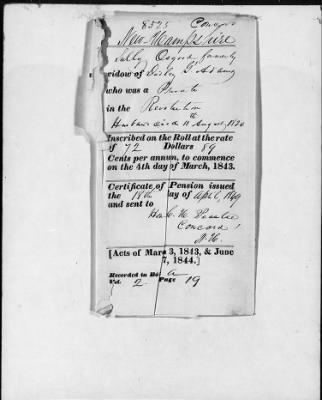 8575 Congress
New Hampshire
Sally Osgood formerly
widow of
who was a Private
in the Revolution
Husband died 11th August, 1820
Inscribed on the Roll at the rate
of 72 Dollars 89
Cents per annum, to commence
on the 4th day of March, 1843.
Certificate of Pension issued
the 18th day of April, 1849
and sent to
Hon. C. H. Peaslee
Concord
N. H.
[Acts of March 3, 1843, & June
7, 1844.]
Recorded in Book A
Vol. 2 Page 19